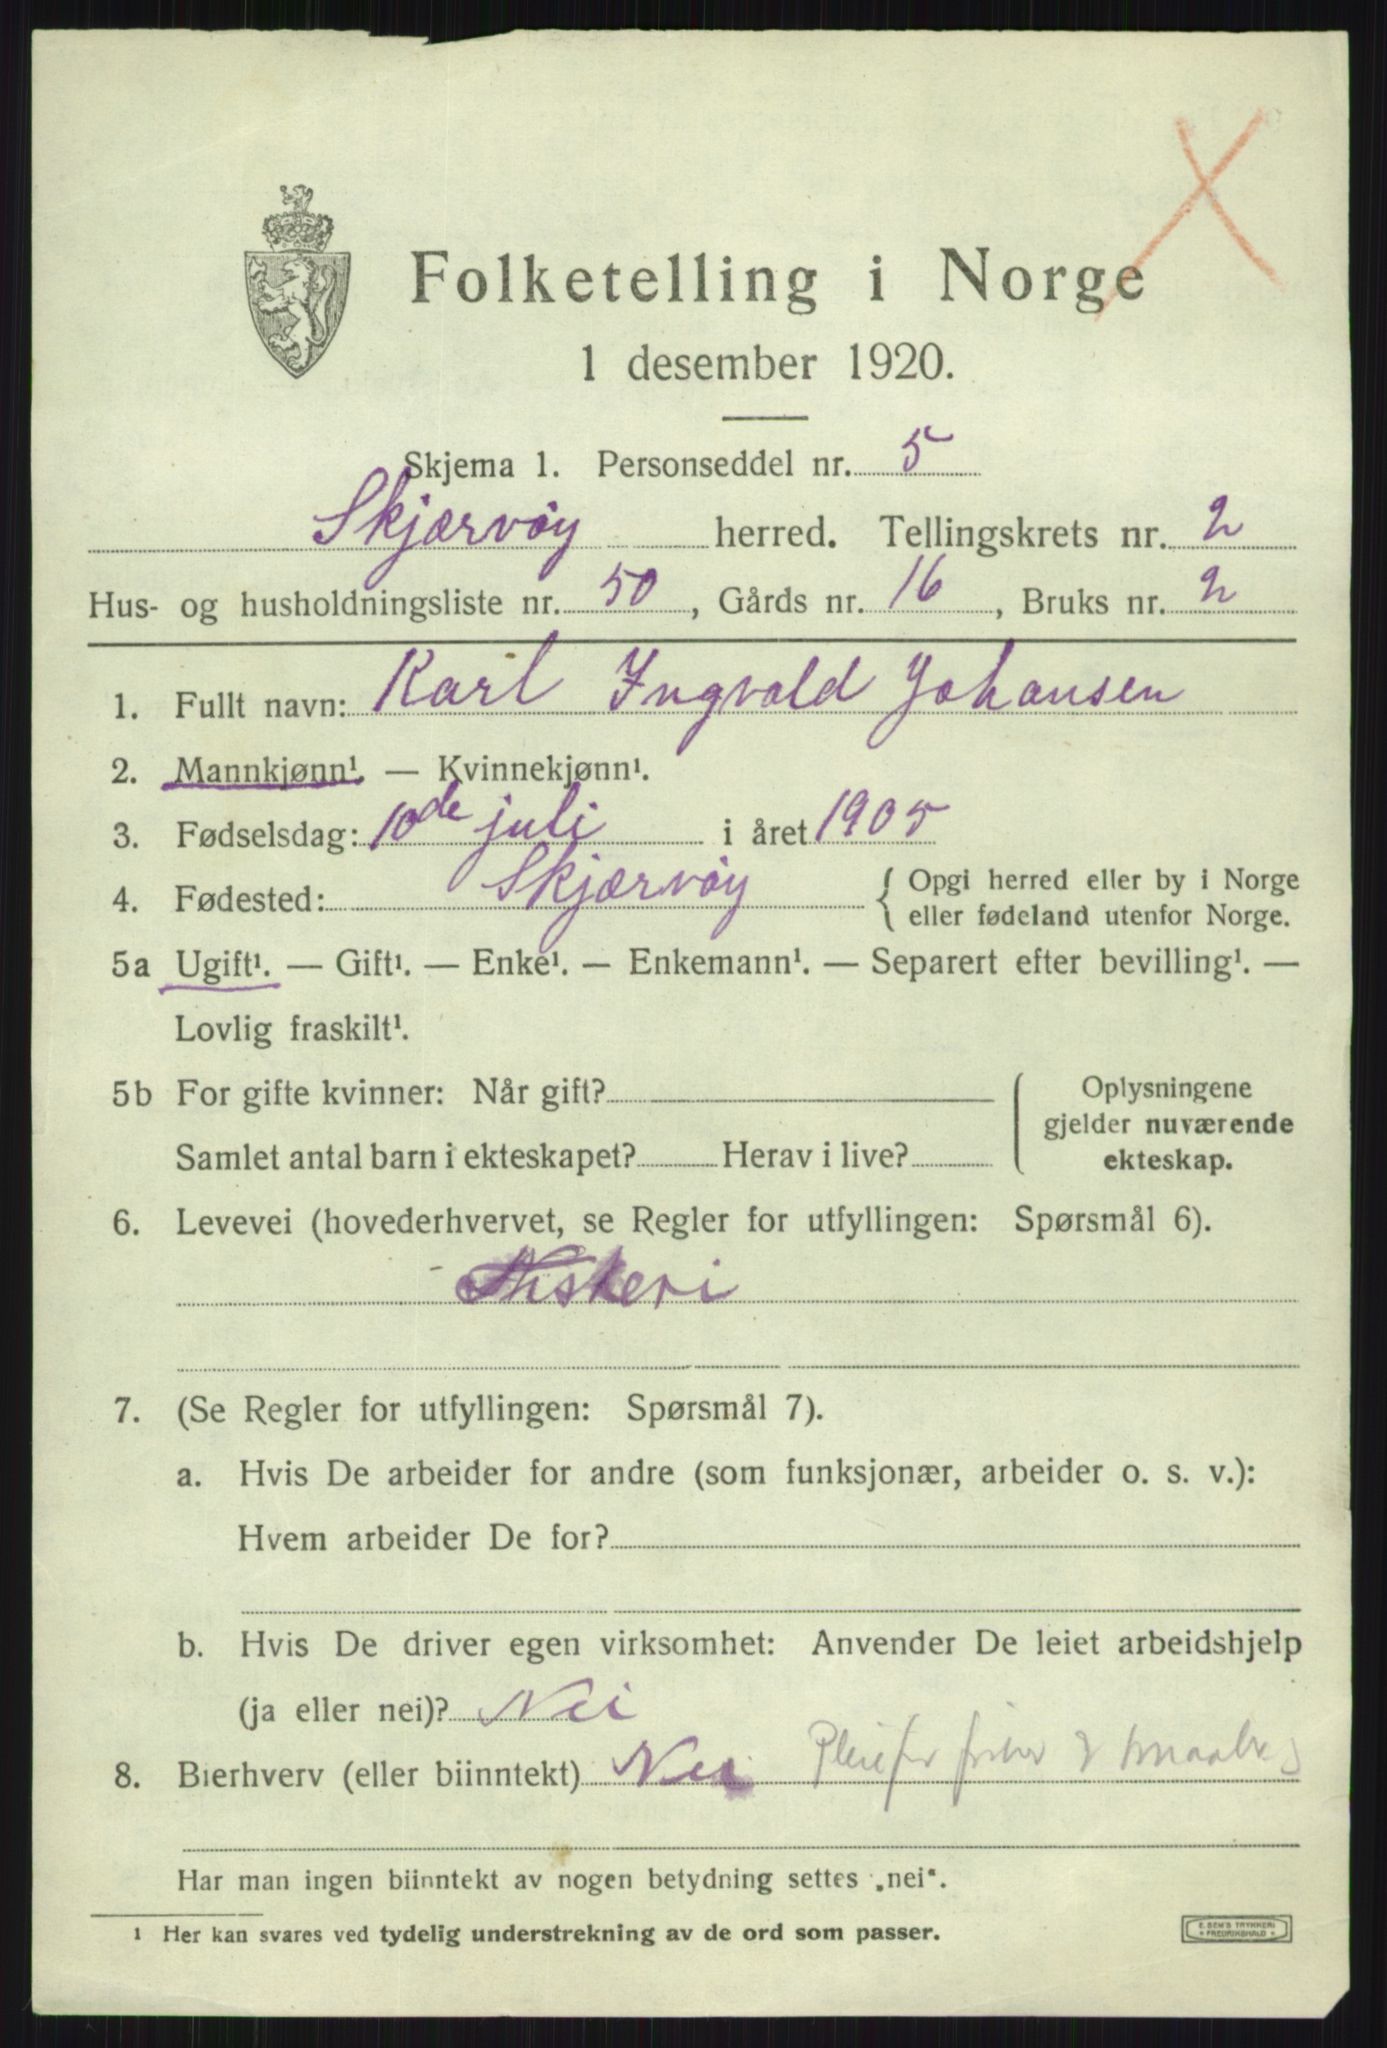 Folketelling i Norge
1 desember 1920.
Skjema 1. Personseddel nr. 5
Skjærvöy herred. Tellingskrets nr. 2
Hus- og husholdningsliste nr. 50, Gårds nr. 16, Bruks nr. 2
1. Fullt navn: Karl Ingvald Johansen
2. Mannkjønn¹. — Kvinnekjønn¹.
3. Fødselsdag: 10de juli i året 1905
4. Fødested: Skjærvöy { Opgi herred eller by i Norge
eller fødeland utenfor Norge.
5a Ugift¹. — Gift¹. — Enke¹. — Enkemann¹. — Separert efter bevilling¹. —
Lovlig fraskilt¹.
5b For gifte kvinner: Når gift?
Samlet antal barn i ekteskapet? Herav i live?
Oplysningene
gjelder nuværende
ekteskap.
6. Levevei (hovederhvervet, se Regler for utfyllingen: Spørsmål 6).
Fiskeri
7. (Se Regler for utfyllingen: Spørsmål 7).
a. Hvis De arbeider for andre (som funksjonær, arbeider o. s. v.):
Hvem arbeider De for?
b. Hvis De driver egen virksomhet: Anvender De leiet arbeidshjelp
(ja eller nei)? Nei
8. Bierhverv (eller biinntekt) Nei
Har man ingen biinntekt av nogen betydning settes „nei“.
1 Her kan svares ved tydelig understrekning av de ord som passer.
E. SEM'S TRYKKERI
FREDRIKSHALD